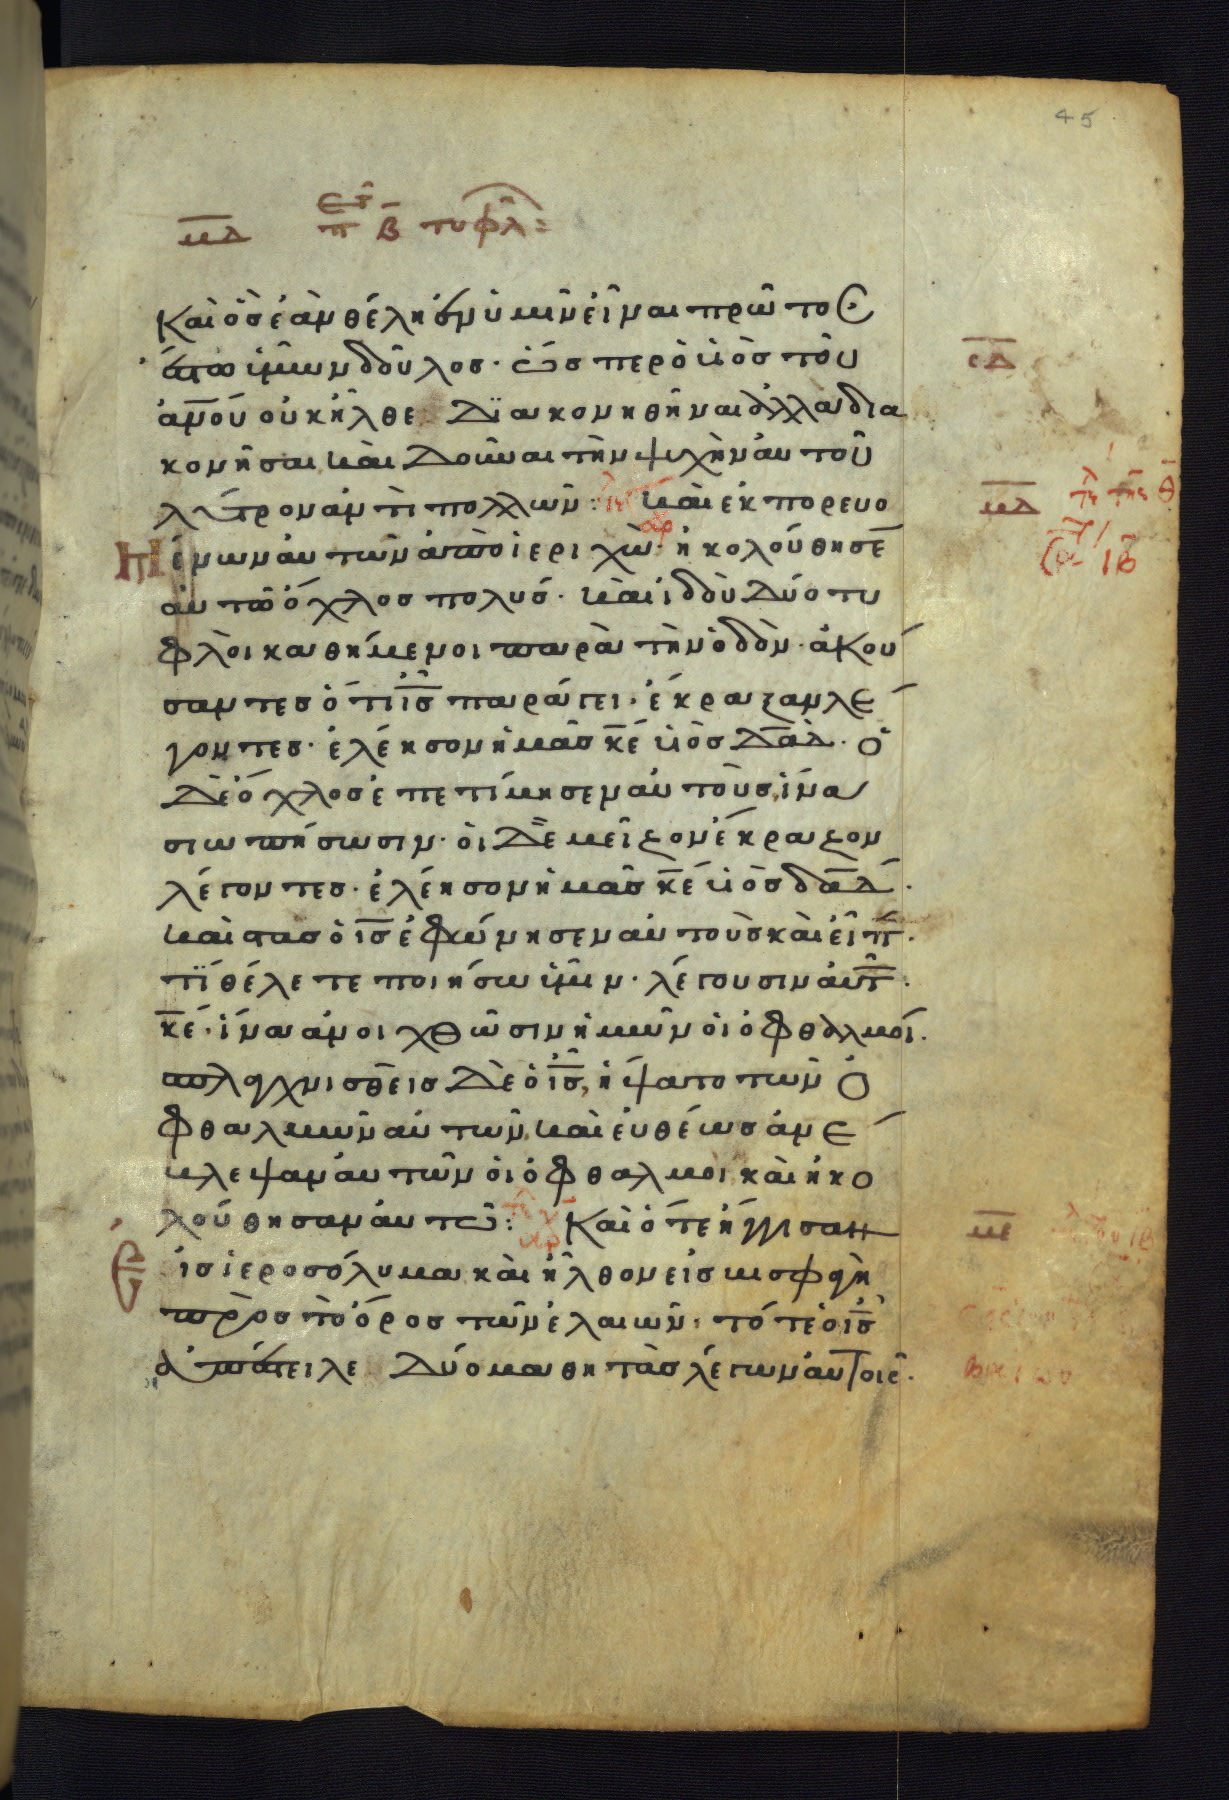 45
μδ π β τυφλ
Και ὃς ἐὰν θέλη ἐν ὑμῖν εἶναι πρῶτος
ἔσται ὑμῶν δοῦλος· ὥσπερ ὁ υἱὸς τοῦ
ἀνου οὐκ ἦλθε διακονηθῆναι ἀλλὰ δια
κονῆσαι καὶ δοῦναι τὴν ψυχὴν αὐτοῦ
λύτρον ἀντὶ πολλῶν: Καὶ ἐκπορευο
μένων αὐτῶν ἀπὸ ἱεριχὼ· ἠκολούθησε
αὐτῶ ὄχλος πολυς· καὶ ἰδοὺ δύο τυ
φλοὶ καθήμενοι παρὰ τὴν ὁδὸν· ἀκού
σαντες ὅτι ις παράγει· ἔκραξαν λέ
γοντες· ἐλέησον ἡμᾶς κε υἱὸς δαδ· ὁ
δὲ ὄχλος ἐπετίμησεν αὐτοὺς, ἵνα
σιωπήσωσιν· οἱ δὲ μεῖζον ἔκραζον
λέγοντες· ἐλέησον ἡμᾶς κε υἱὸς δαδ·
καὶ στας ὁ ις ἐφώνησεν αὐτοὺς καὶ εἶπ·
τί θέλετε ποιήσω ὑμῖν· λέγουσιν αὐτ·
κε· ἵνα ἀνοιχθῶσιν ἡμῶν οἱ ὀφθαλμοί·
σπλαγχνισθεις δὲ ὁ ις, ἥψατο τῶν ὀ
φθαλμῶν αὐτῶν, καὶ εὐθέως ἀνέ
βλεψαν αὐτῶν οἱ ὀφθαλμοι καὶ ἠκο
λούθησαν αὐτῶ: Καὶ ὅτε ἤγγισαν
εἰς ἱεροσόλυμα καὶ ἦλθον εἰς βισφαγὴ
πρὸς τὸ ὄρος τῶν ἐλαιῶν· τότε ὁ ις
ἀπέστειλε δύο μαθητὰς λέγων αὐτοις·
σδ
μδ
ιβ
με